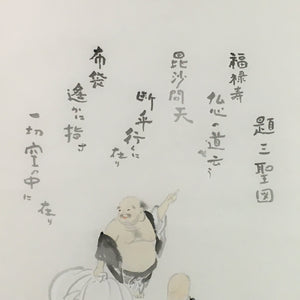 題三聖図
福禄寿
仏心の道云う
毘沙門天
断乎行くに
在り
布袋
遙かに指す
一切空の中に
在り